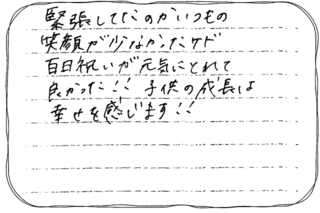 緊張してたのかいつもの
笑顔が少なかったケド
百日祝いが元気にとれて
良かった!! 子供の成長は
幸せを感じます!!